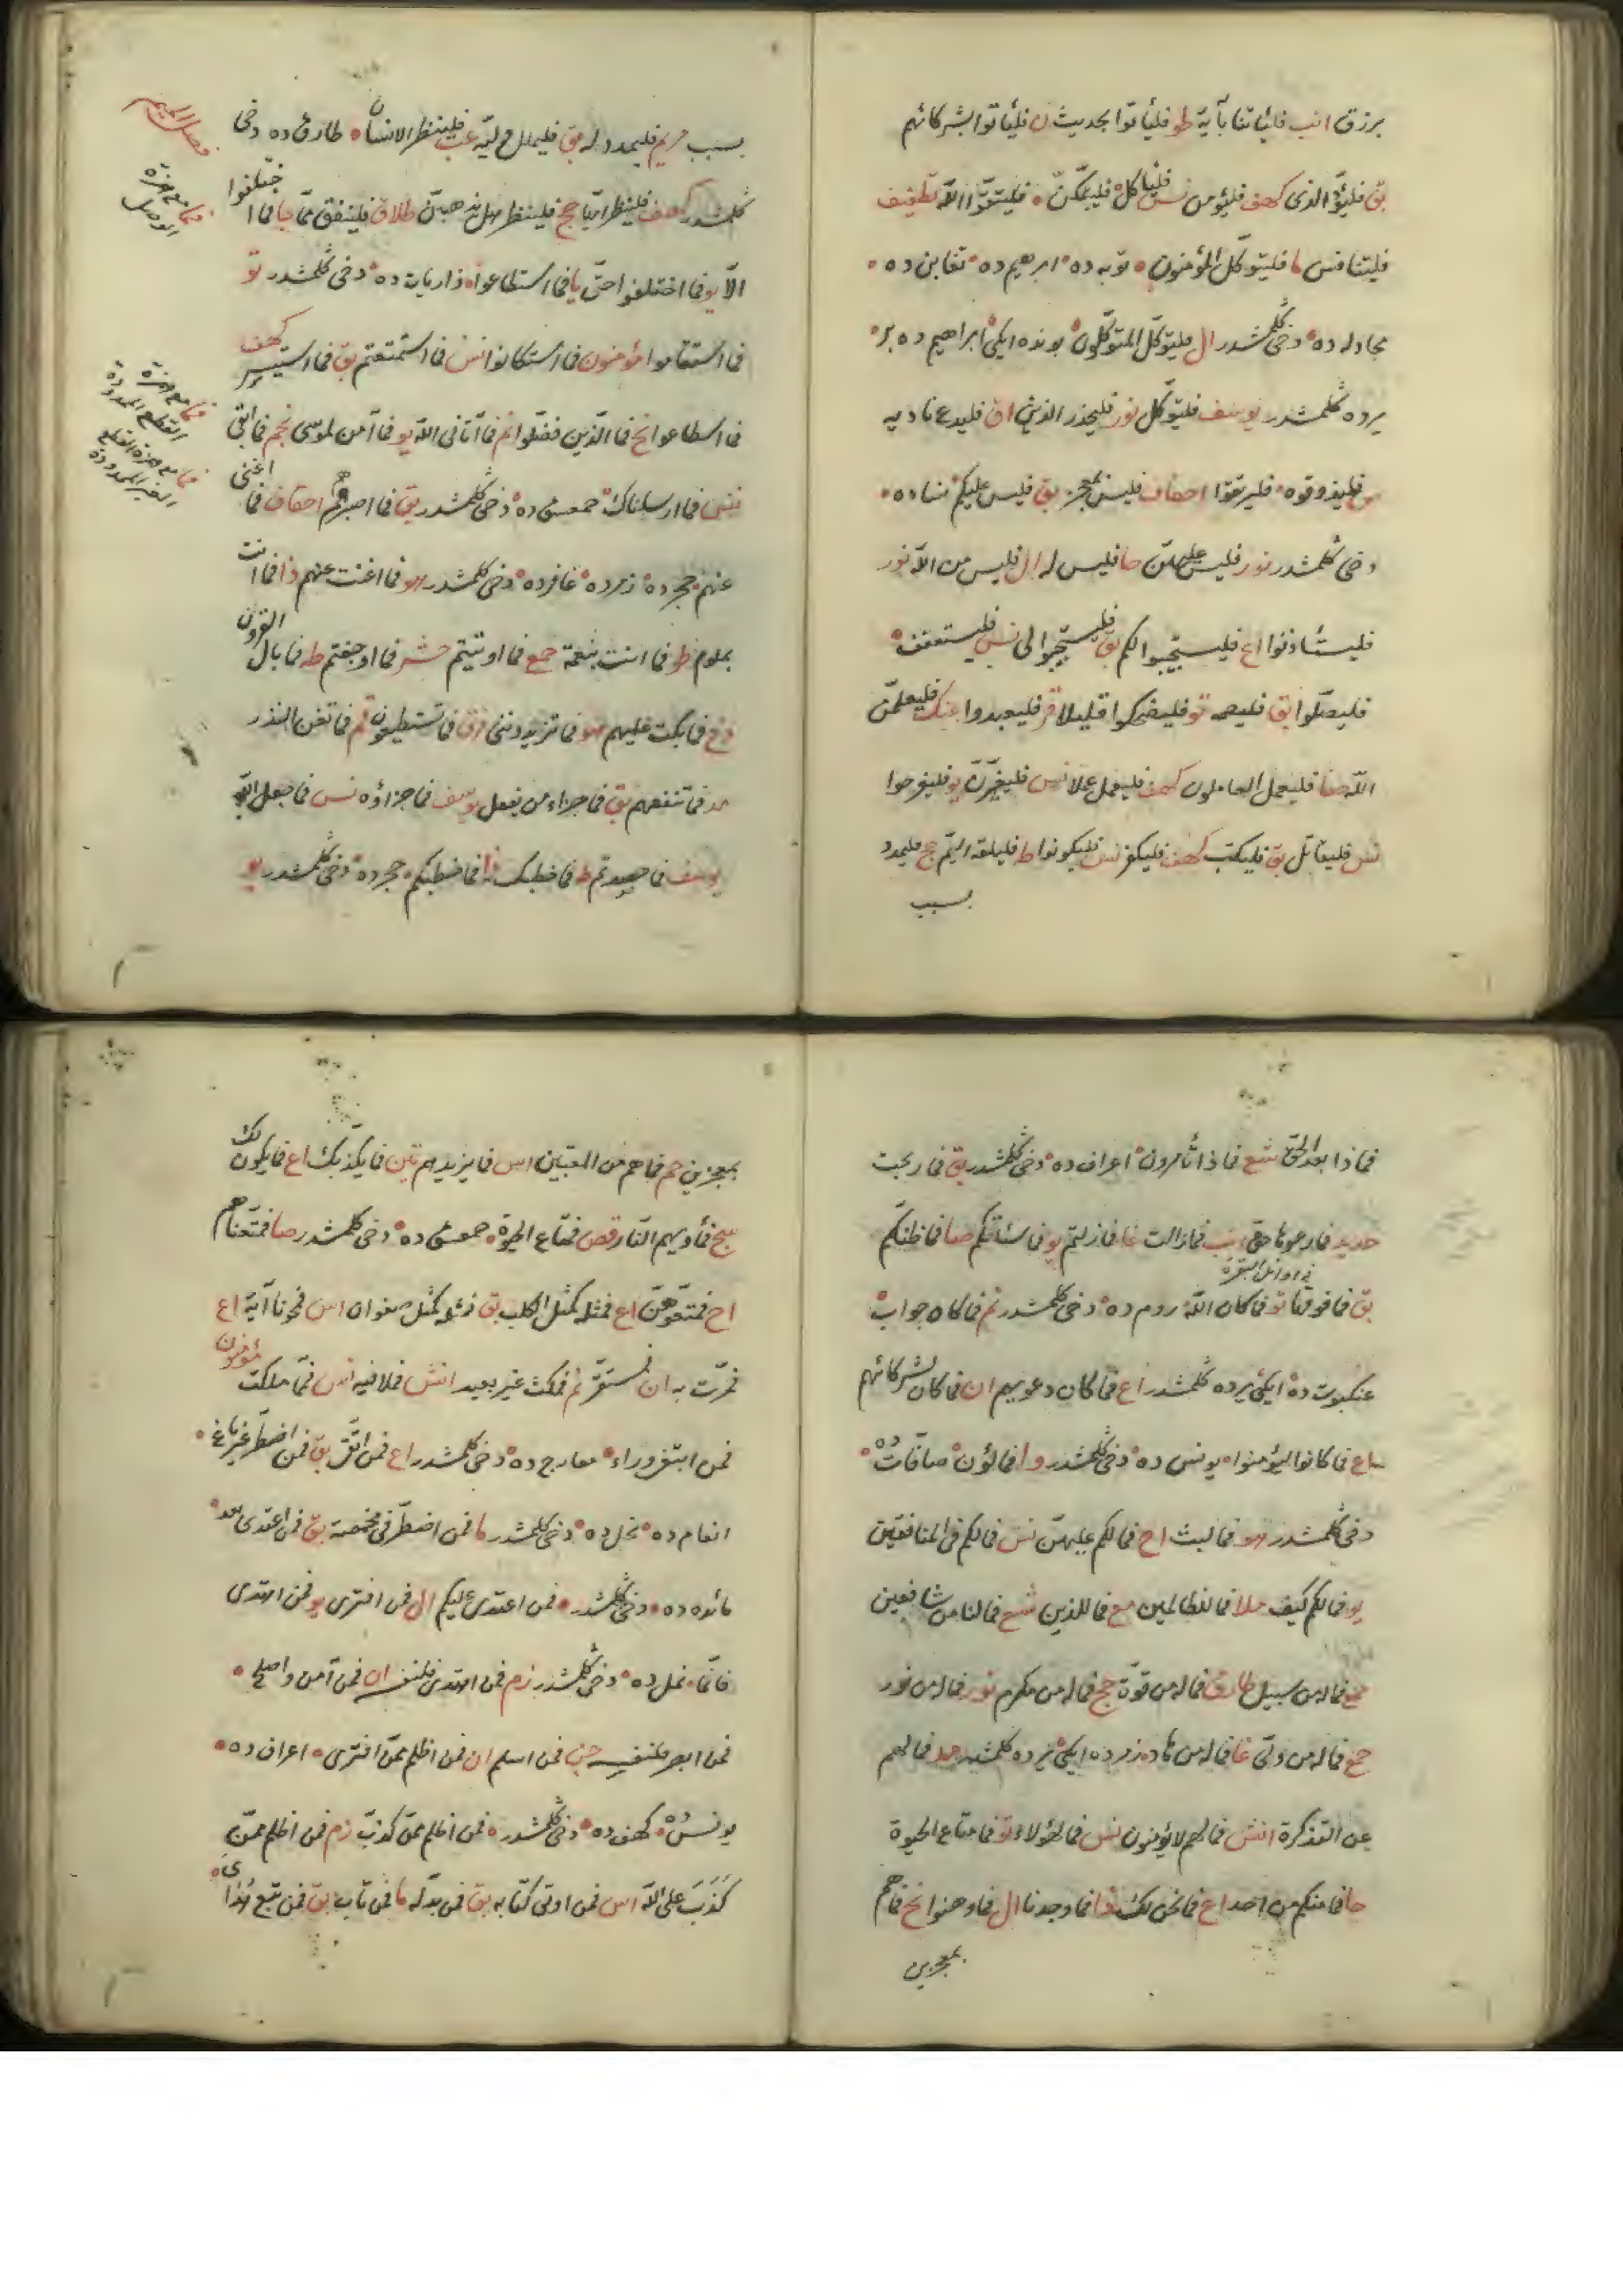 برزق انب فليأتنا بآية طو فليأتوا بحديث ن فليأتوا بشركائهم
بق فليؤد الذى كهف فليؤمن نس فليأكل فليبتكن فليتقوا الله تطفيف
فليتنافس ما فليتوكل المؤمنون توبه ده ابرهيم ده تغابن ده
مجادله ده دخى كلمشدر ال فليتوكل المتوكلون بونده ايكى ابراهيم ده بر
يرده كلمشدر يوسف فليتوكل نور فليحذر الذين اق فليدع ناديه
فليذوقوه فليرتقوا احقاف فليس بمعجز بق فليس عليكم نساده
دخى كلمشدر نور فليس عليهن حا فليس له ال فليس من الله نور
فليستأذنوا اع فليستجيبوا لكم بق فليستجيبوا لى نس فليستعفف
فليصلوا بق فليصمه تو فليضحكوا قليلا قر فليعبدوا عنك فليعلمن
الله صا فليعمل العاملون كهف فليعمل عملا نس فليغيرن يو فليفرحوا
نس فليقاتل بق فليكتب كهف فليكفر نس فليكونوا ط فليلقه اليم حج فليمدد
بسبب
بسبب مريم فليمدد له بق فليملل وليه عب فلينظر الانسان طارق ده دخى
كلمشدر كهف فلينظر ايها حج فلينظر هل يذهبن طلاق فلينفق مما جا فما اختلفوا
الا يو فما اختلفوا حتى يا فما استطاعوا ذاريات ده دخى كلمشدر تو
فما استقاموا مؤمنون فما استكانوا نس فما استمتعتم بق فما استيسر كهف
فما اسطاعوا نح فما الذين فضلوا نم فما آتانى الله يو فما آمن لموسى نجم فما ابقى
نس فما ارسلناك حمعسق ده دخى كلمشدر بق فما اصبرهم احقاف فما اغنى
عنهم حجر ده زمر ده غافر ده دخى كلمشدر هو فما اغنت عنهم ذا فما انت
بملوم طو فما انت بنعمة جمع فما اوتيتم حشر فما اوجفتم طه فما بال القرون
دخ فما بكت عليهم هو فما تزيدوننى فرق فما تستطيعون قم فما تغن النذر
مد فما تنفعهم بق فما جزاء من يفعل يوسف فما جزاؤه نس فما جعل الله
يوسف فما حصدتم طه فما خطبك ذا فما خطبكم حجر ده دخى كلمشدر يو
فما مع همزة الوصل
فما مع همزة القطع الممدودة
فما مع همزة القطع الغير الممدودة
فماذا بعد الحق شع فماذا تأمرون اعراف ده دخى كلمشدر بق فما ربحت
حديد فما رعوها حق انب فما زالت غا فما زلتم يو فما سئلتكم صا فما ظنكم
فى اوائل البقره
بق فما فوقها تو فما كان الله روم ده دخى كلمشدر نم فما كان جواب
عنكبوت ده ايكى يرده كلمشدر اع فما كان دعويهم ان فما كان لشركائهم
اع فما كانوا ليؤمنوا يونس ده دخى كلمشدر وا فمالؤن صافات ده
دخى كلمشدر هو فما لبث اح فما لكم عليهن نس فما لكم فى المنافقين
يو فما لكم كيف ملا فما للظالمين مع فما للذين شع فما لنا من شافعين
حمع فما له من سبيل طارق فما له من قوة حج فما له من مكرم نور فما له من نور
حمع فما له من ولى غا فما له من هاد زمر ده ايكى يرده كلمشدر مد فما لهم
عن التذكرة انش فما لهم لا يؤمنون نس فما لهؤلاء تو فما متاع الحيوة
حا فما منكم من احد اع فما نحن لك ذا فما وجدنا ال فما وهنوا نح فما هم
بمعجزين
بمعجزين حم فما هم من المعتبين اس فما يزيدهم تين فما يكذبك اع فما يكون لك
سج فمأويهم النار قص فمتاع الحيوة حمعسق ده دخى كلمشدر صا فمتعناهم
اح فمتعوهن اع فمثله كمثل الكلب بق فمثله كمثل صفوان اس فمحونا آية اع
فمرت به ان فمستقر نم فمكث غير بعيد انش فملاقيه نس فمما ملكت مؤمنون
فمن ابتغى وراء معارج ده دخى كلمشدر اع فمن اتقى بق فمن اضطر غير باغ
انعام ده نحل ده دخى كلمشدر ما فمن اضطر فى مخمصة بق فمن اعتدى بعد
مائده ده دخى كلمشدر فمن اعتدى عليكم ال فمن افترى يو فمن اهتدى
فانما نمل ده دخى كلمشدر زم فمن اهتدى فلنفسه ان فمن آمن واصلح
فمن ابصر فلنفسه جن فمن اسلم ان فمن اظلم ممن افترى اعراف ده
يونس ده كهف ده دخى كلمشدر فمن اظلم ممن كذب زم فمن اظلم ممن
كذب على الله اس فمن اوتى كتابه بق فمن بدله ما فمن تاب بق فمن تبع هداى